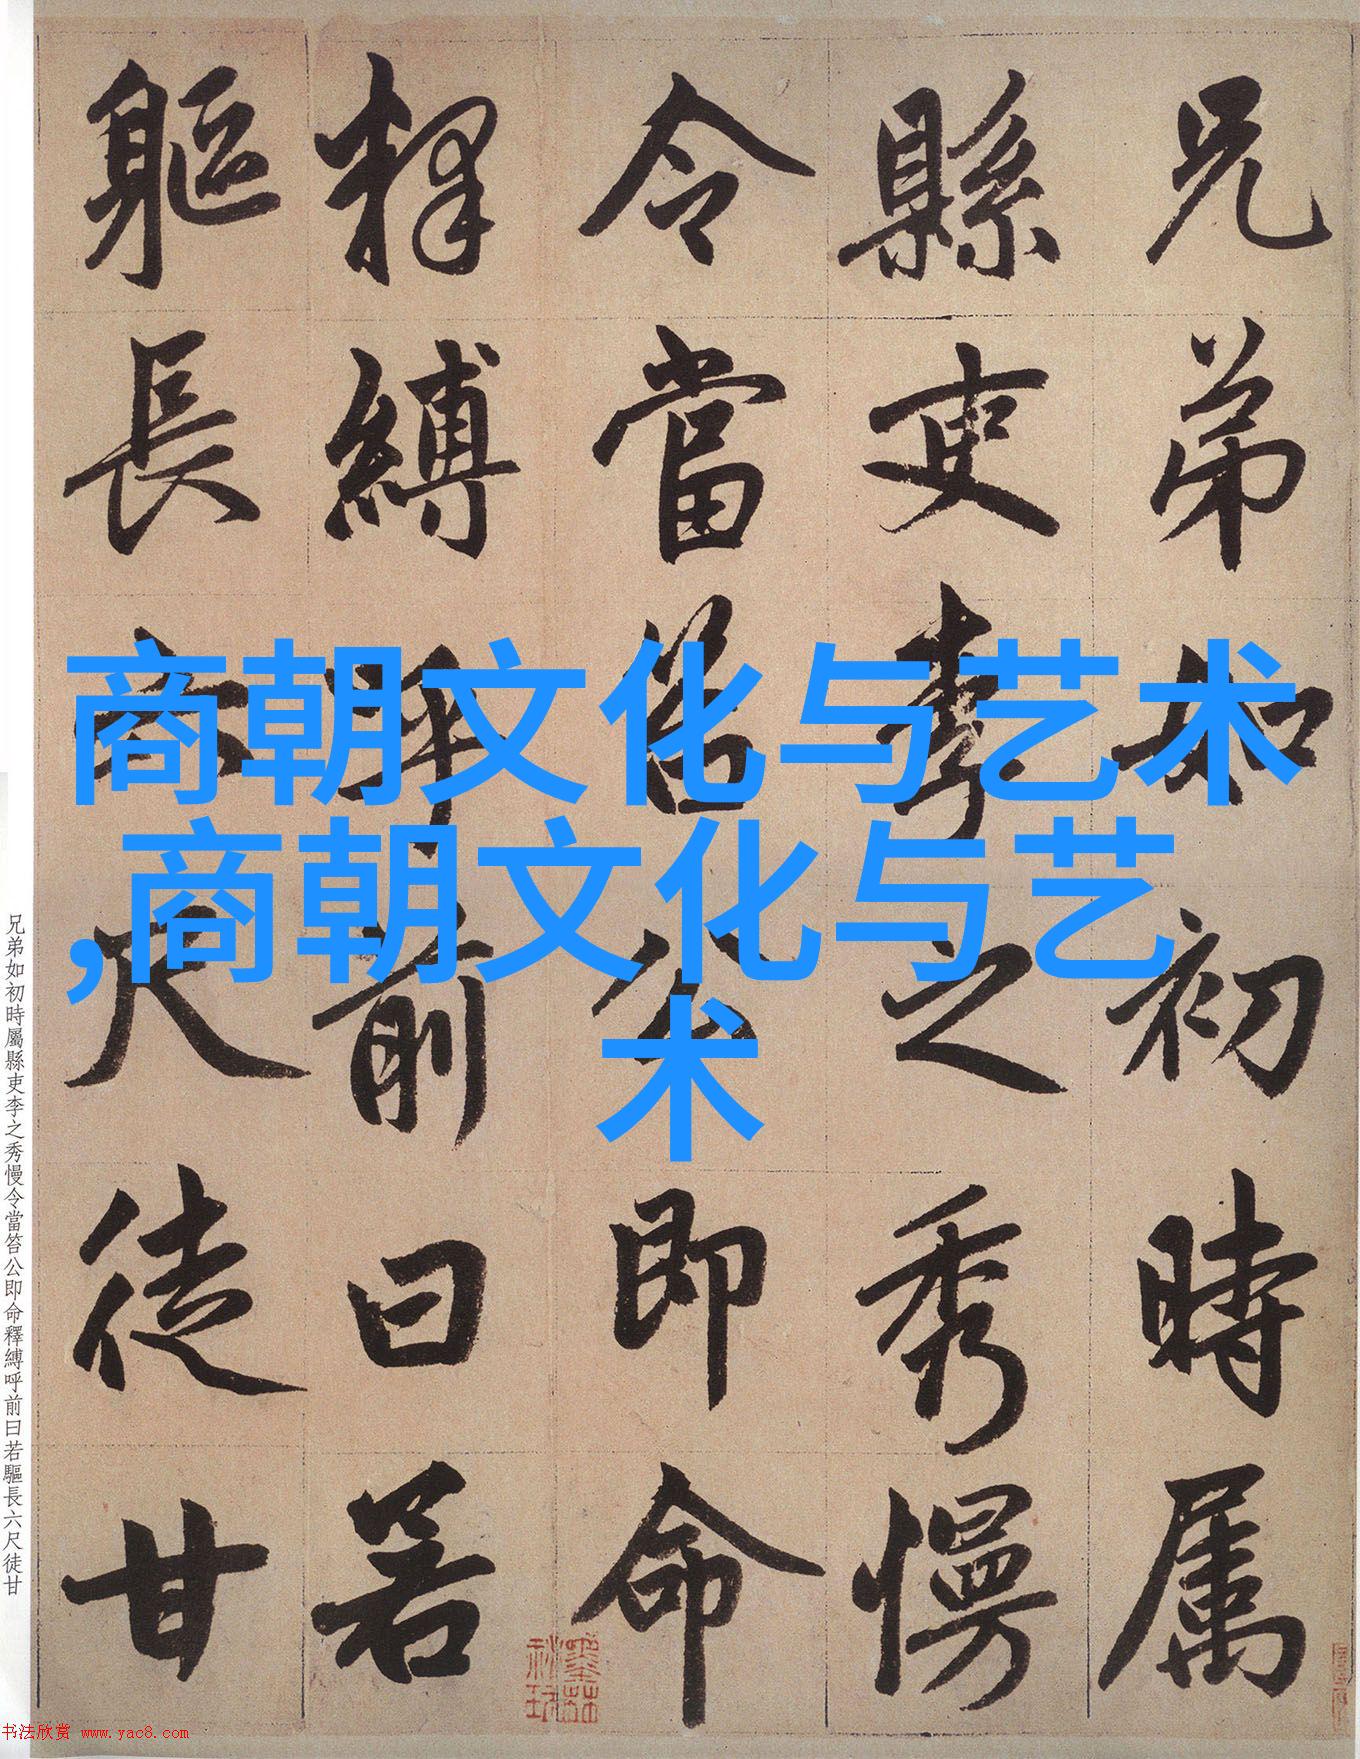 商朝文化与艺术
,商朝文化与艺
术
兄弟如初時属
縣吏李之秀慢
令當笞公即命
釋縛呼前曰若
軀長六尺徒甘
兄弟如初時屬縣吏李之秀慢令當笞公即命釋縛呼前曰若驅長六尺徒甘
书法欣赏 www.yac8.com